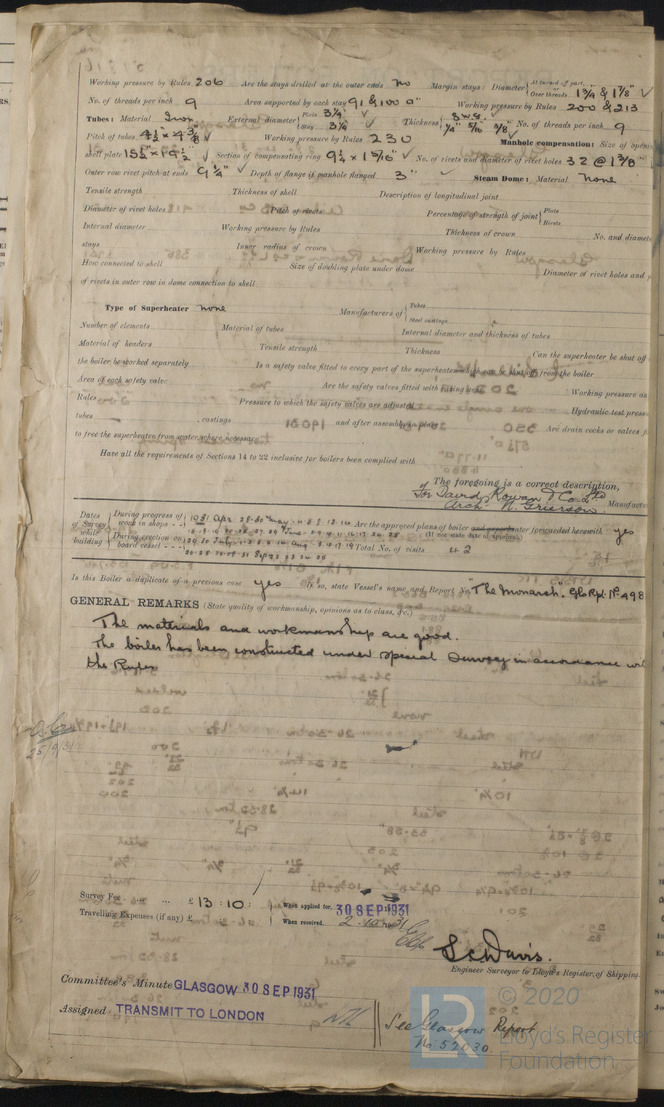 Working pressure by Rules 206 Are the stays drilled at the outer ends No Margin stays: Diameter { At turned off part, or Over threads 1 3/4 & 1 7/8"
No. of threads per inch 9 Area supported by each stay 91 & 100 □" Working pressure by Rules 200 & 213
Tubes: Material Iron External diameter { Plain 3 1/4" Stay 3 1/4" Thickness { 8 W.G. 1/4" 5/16" 3/8" No. of threads per inch 9
Pitch of tubes 4 1/2 × 4 3/8" Working pressure by Rules 230 Manhole compensation: Size of open
shell plate 15 1/2" × 19 1/2" Section of compensating ring 9 1/2 × 1 5/16" No. of rivets and diameter of rivet holes 32 @ 1 3/8"
Outer row rivet pitch at ends 9 1/4" Depth of flange if manhole flanged 3" Steam Dome: Material None
Tensile strength Thickness of shell Description of longitudinal joint
Diameter of rivet holes Pitch of rivets Percentage of strength of joint { Plate Rivets
Internal diameter Working pressure by Rules Thickness of crown No. and diamete
stays Inner radius of crown Working pressure by Rules
How connected to shell Size of doubling plate under dome Diameter of rivet holes and
of rivets in outer row in dome connection to shell
Type of Superheater None Manufacturers of { Tubes Steel castings
Number of elements Material of tubes Internal diameter and thickness of tubes
Material of headers Tensile strength Thickness Can the superheater be shut off
the boiler be worked separately Is a safety valve fitted to every part of the superheater which can be shut off from the boiler
Area of each safety valve Are the safety valves fitted with easing gear Working pressure as
Rules Pressure to which the safety valves are adjusted Hydraulic test press
tubes castings and after assembly in place Are drain cocks or valves
to free the superheater from water where necessary
Have all the requirements of Sections 14 to 22 inclusive for boilers been complied with
The foregoing is a correct description,
For David Rowan & Co Ltd
Arch. N. Grierson Manufac
Dates of Survey while building { During progress of work in shops - - 1931 Apr 28.30 May Are the approved plans of boiler forwarded herewith yes
(If not state date of approval)
During erection on board vessel - - - Total No. of visits 42
Is this Boiler a duplicate of a previous case yes If so, state Vessel's name and Report No. "The Monarch". Gls Rpt No 498
GENERAL REMARKS (State quality of workmanship, opinions as to class, &c.)
The materials and workmanship are good.
The boiler has been constructed under special survey in accordance wi
the Rules
25/9/31
Survey Fee £ 13 : 10 : When applied for, 30 SEP 1931
Travelling Expenses (if any) £ When received, 2.10.1931
L C Davis.
Engineer Surveyor to Lloyd's Register of Shipping.
Committee's Minute GLASGOW 30 SEP 1931
Assigned TRANSMIT TO LONDON
See Glasgow Report
No. 52030
LR © 2020
Lloyd's Register
Foundation